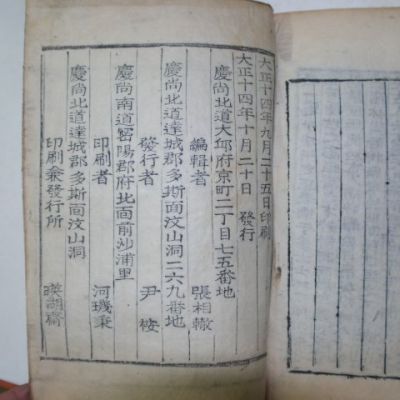 大正十四年九月二十五日印刷
大正十四年十月二十日 發行
慶尚北道大邱府京町二丁目七五番地
編輯者 張相轍
慶尚北道達城郡多斯面汶山洞二六九番地
發行者 尹
慶尚南道密陽郡府北面前沙浦里
印刷者 河璣秉
慶尚北道達城郡多斯面汶山洞
印刷兼發行所 湖齋